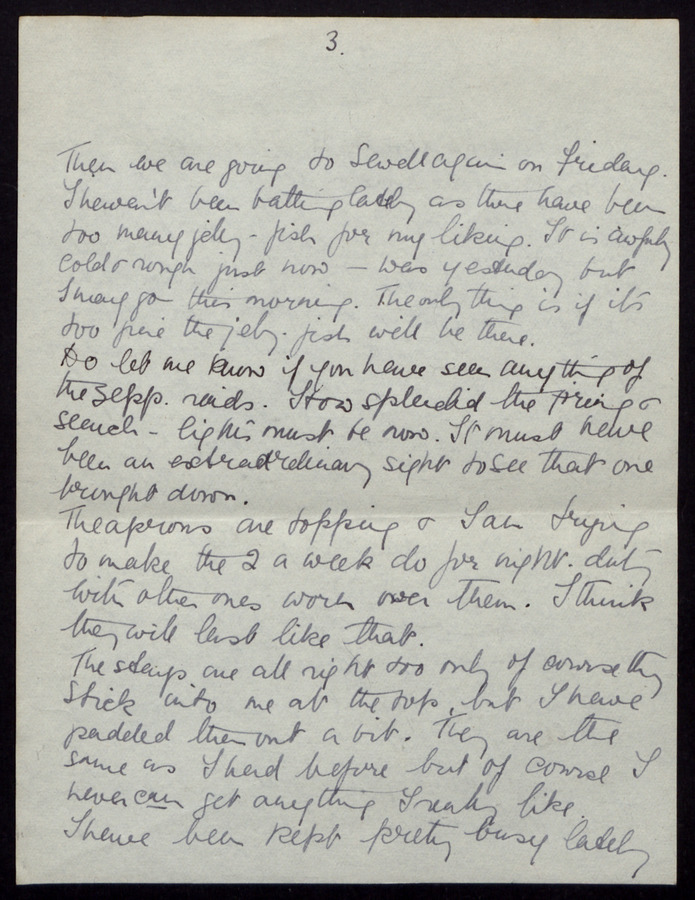 3.
Then we are going to Sewell again on Friday.
I haven't been bathing lately as there have been
too many jelly-fish for my liking. It is awfully
cold & rough just now – was yesterday but
I may go this morning. The only thing is if it's
too fine the jelly-fish will be there.
Do let me know if you have seen anything of
the Zepp. raids. How splendid the firing &
search-lights must be now. It must have
been an extraordinary sight to see that one
brought down.
The aprons are topping & I am trying
to make the 2 a week do for night-duty
with other ones worn over them. I think
they will last like that.
The stays are all right too only of course they
stick into me at the top, but I have
padded them out a bit. They are the
same as I had before but of course I
never can get anything I really like.
I have been kept pretty busy lately